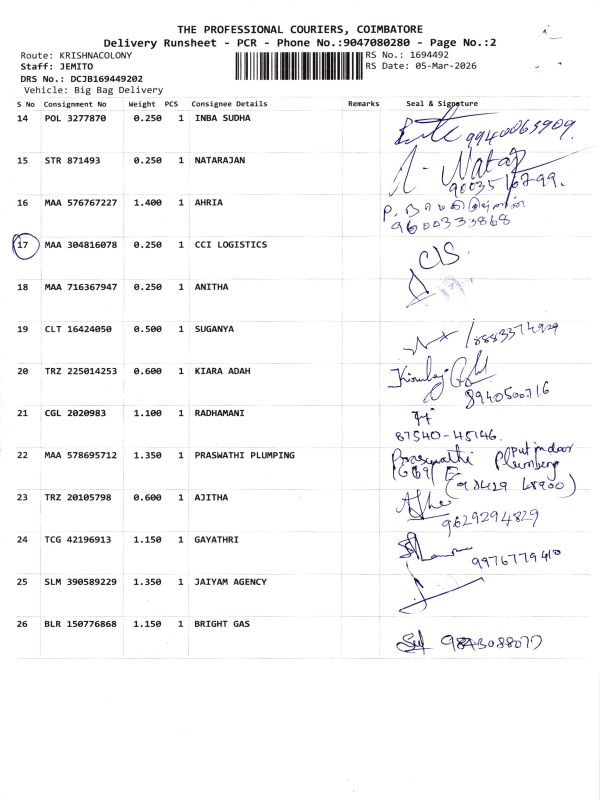 THE PROFESSIONAL COURIERS, COIMBATORE
Delivery Runsheet - PCR - Phone No.:9047080280 - Page No.:2
Route: KRISHNACOLONY RS No.: 1694492
Staff: JEMITO RS Date: 05-Mar-2026
DRS No.: DCJB169449202
Vehicle: Big Bag Delivery
S No Consignment No Weight PCS Consignee Details Remarks Seal & Signature
14 POL 3277870 0.250 1 INBA SUDHA 9940063909.
15 STR 871493 0.250 1 NATARAJAN
16 MAA 576767227 1.400 1 AHRIA
9600333868
17 MAA 304816078 0.250 1 CCI LOGISTICS
18 MAA 716367947 0.250 1 ANITHA
19 CLT 16424050 0.500 1 SUGANYA 8883374929
20 TRZ 225014253 0.600 1 KIARA ADAH
8940500716
21 CGL 2020983 1.100 1 RADHAMANI
87540-45146.
22 MAA 578695712 1.350 1 PRASWATHI PLUMPING put indoor
Plumberg
(98429 48900)
23 TRZ 20105798 0.600 1 AJITHA
9629294829
24 TCG 42196913 1.150 1 GAYATHRI
9976779410
25 SLM 390589229 1.350 1 JAIYAM AGENCY
26 BLR 150776868 1.150 1 BRIGHT GAS 9843088077